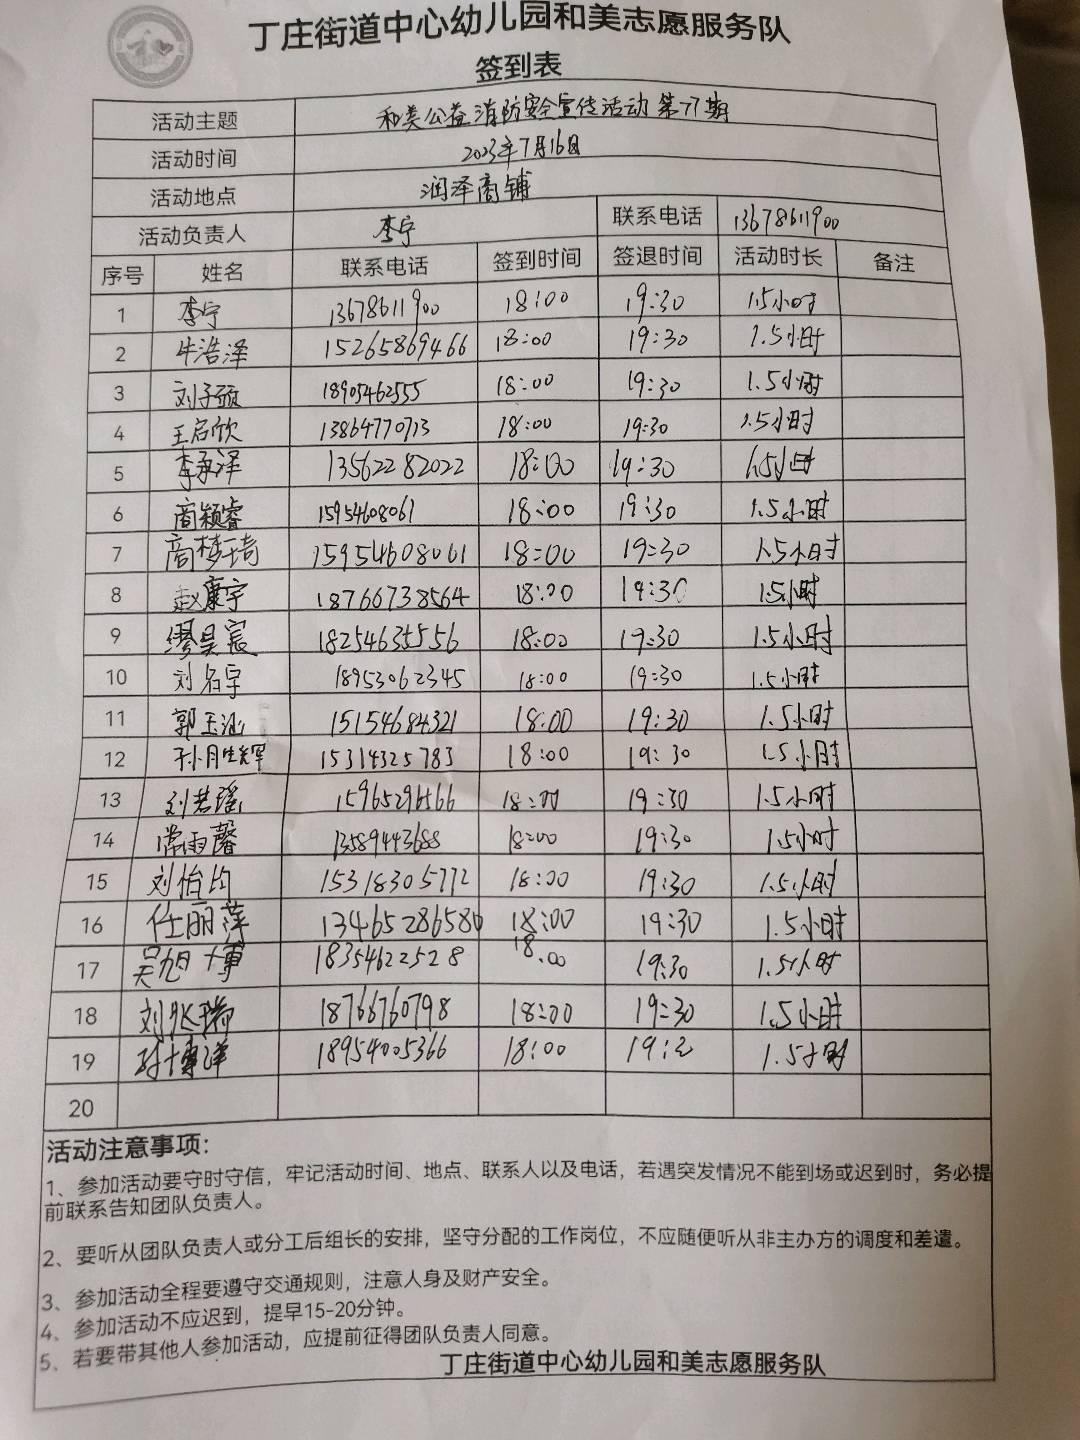 丁庄街道中心幼儿园和美志愿服务队
签到表
活动主题 和美公益消防安全宣传活动第77期
活动时间 2023年7月16日
活动地点 润泽商铺
活动负责人 李宁 联系电话 13678611900
序号 姓名 联系电话 签到时间 签退时间 活动时长 备注
1 李宁 13678611900 18:00 19:30 1.5小时
2 牛浩泽 15265869466 18:00 19:30 1.5小时
3 刘子硕 18905462555 18:00 19:30 1.5小时
4 王启欣 13864770713 18:00 19:30 1.5小时
5 李承泽 13562282022 18:00 19:30 1.5小时
6 商颖睿 15954608061 18:00 19:30 1.5小时
7 商梦琦 15954608061 18:00 19:30 1.5小时
8 赵康宇 18766738564 18:00 19:30 1.5小时
9 缪昊宸 18254635556 18:00 19:30 1.5小时
10 刘名宇 18953062345 18:00 19:30 1.5小时
11 郭玉涵 15154684321 18:00 19:30 1.5小时
12 孙月生辉 15314325783 18:00 19:30 1.5小时
13 刘若瑶 15965296566 18:00 19:30 1.5小时
14 常雨馨 13589443688 18:00 19:30 1.5小时
15 刘怡均 15318305772 18:00 19:30 1.5小时
16 任丽萍 13465286580 18:00 19:30 1.5小时
17 吴旭博 18354622528 18:00 19:30 1.5小时
18 刘张瑞 18766760798 18:00 19:30 1.5小时
19 博洋 18954005366 18:00 1.5小时
20
活动注意事项：
1、参加活动要守时守信，牢记活动时间、地点、联系人以及电话，若遇突发情况不能到场或迟到时，务必提
前联系告知团队负责人。
2、要听从团队负责人或分工后组长的安排，坚守分配的工作岗位，不应随便听从非主办方的调度和差遣。
3、参加活动全程要遵守交通规则，注意人身及财产安全。
4、参加活动不应迟到，提早15-20分钟。
5、若要带其他人参加活动，应提前征得团队负责人同意。
丁庄街道中心幼儿园和美志愿服务队